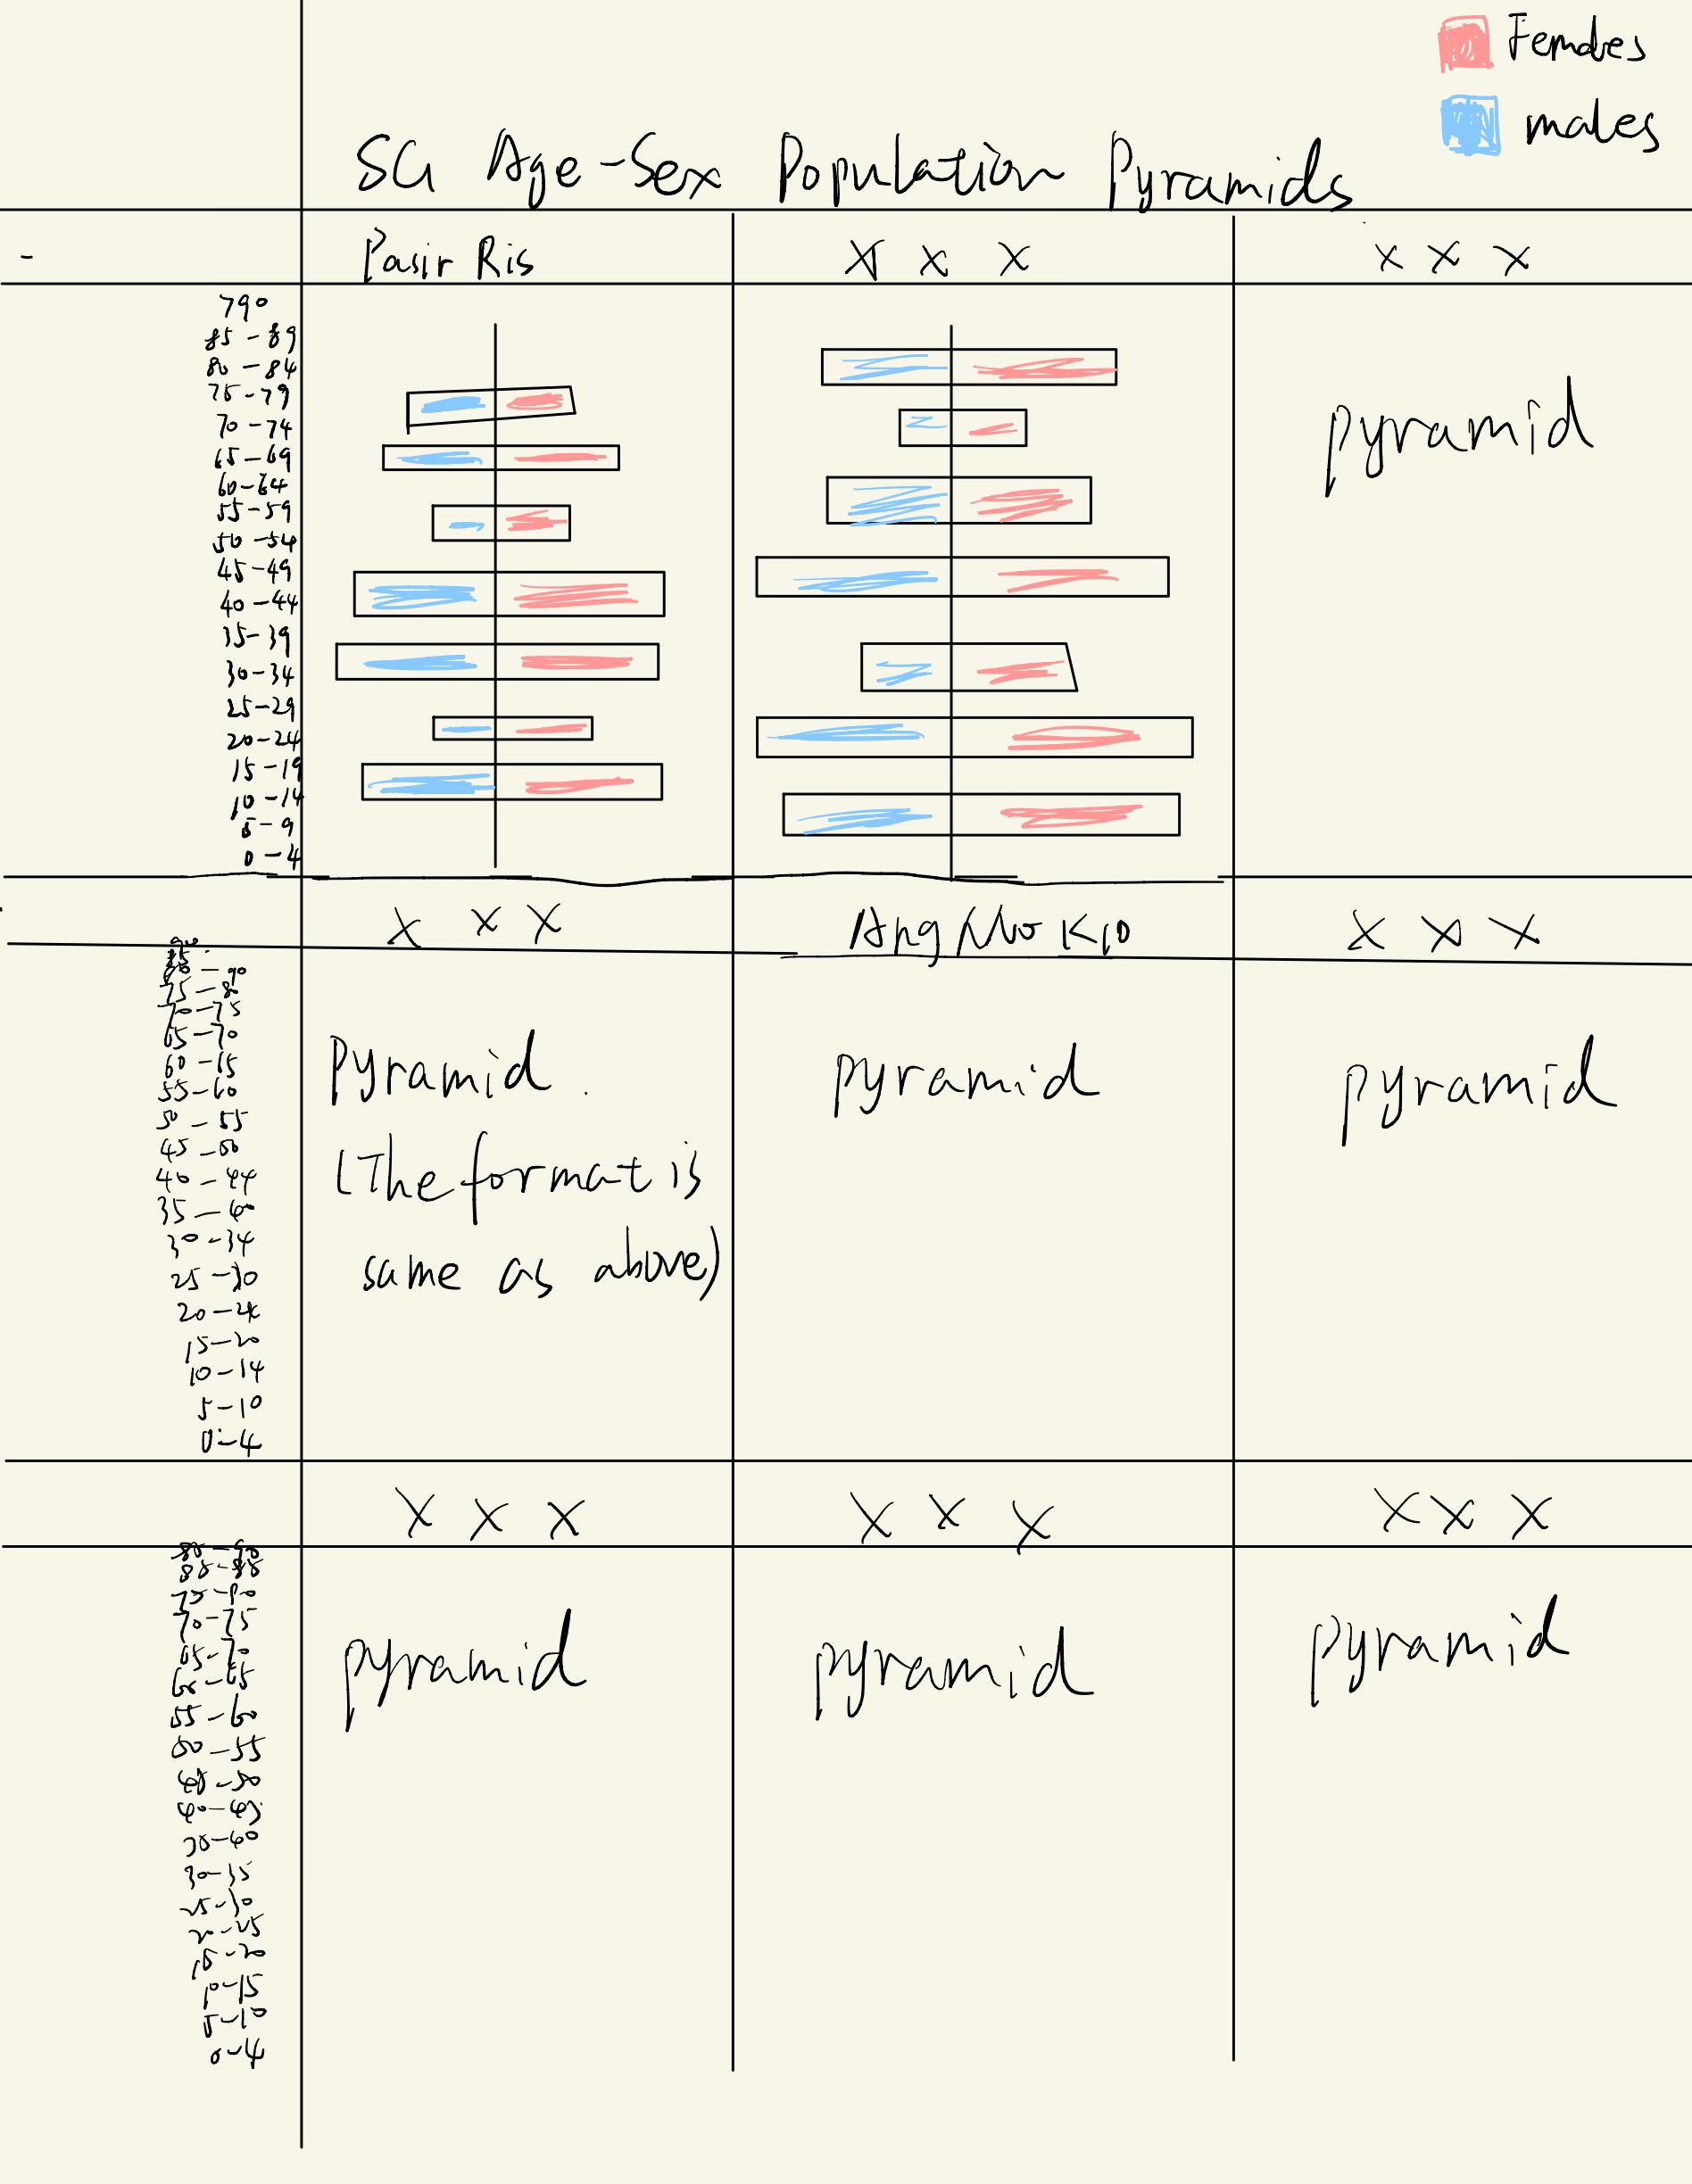 Females
males
SG Age-Sex Population Pyramids
Pasir Ris
X X X
X X X
790
85-89
80-84
75-79
70-74
65-69
60-64
55-59
50-54
45-49
40-44
35-39
30-34
25-29
20-24
15-19
10-14
5-9
0-4
pyramid
X X X
Ang Mo Kio
X X X
75-80
70-75
65-70
60-65
55-60
50-55
45-50
40-44
35-40
30-34
25-30
20-24
15-20
10-14
5-10
0-4
Pyramid.
(The format is
same as above)
pyramid
pyramid
X X X
X X X
X X X
75-80
70-75
65-70
60-65
55-60
50-55
45-50
40-45
30-40
30-35
25-30
20-25
15-20
10-15
5-10
0-4
pyramid
pyramid
pyramid